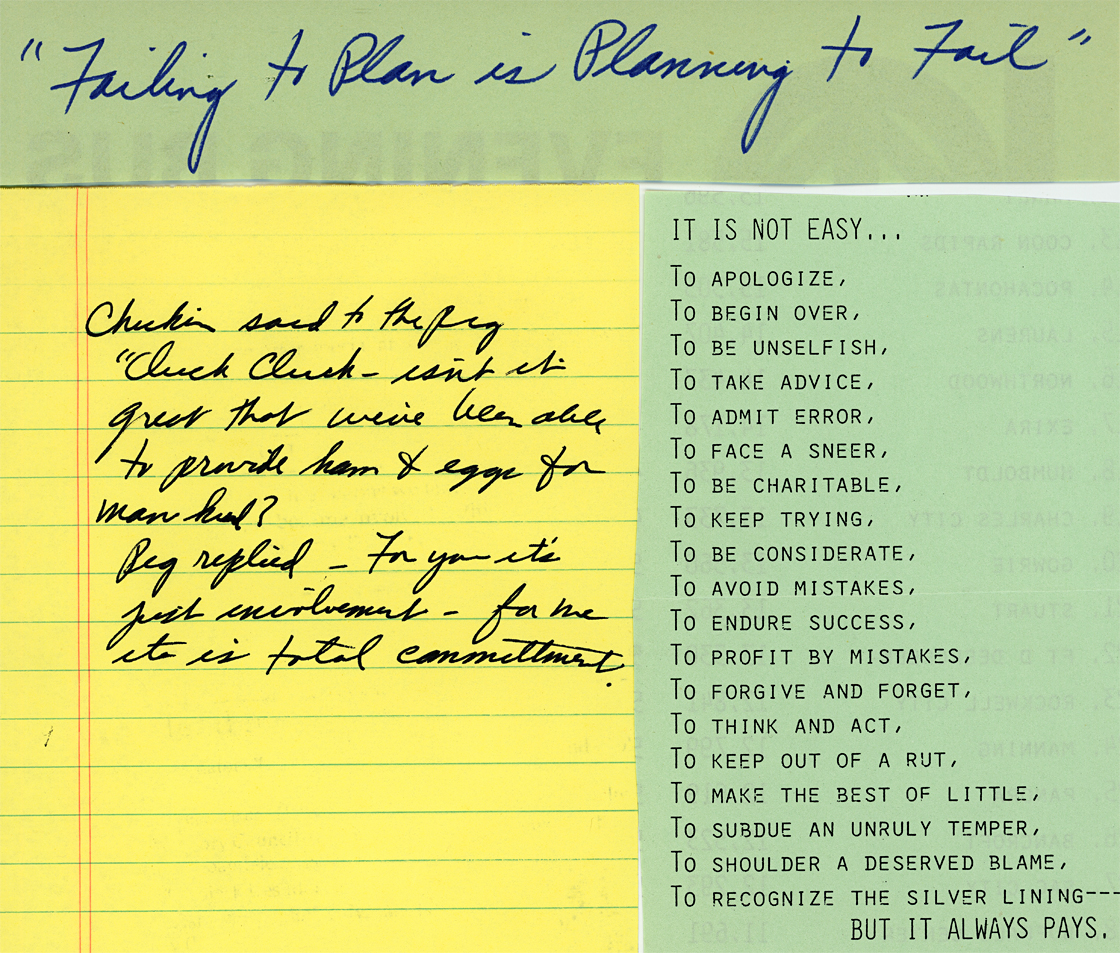 "Failing to Plan is Planning to Fail"
Chicken said to the pig
"Cluck Cluck - isn't it
great that we've been able
to provide ham & eggs for
mankind?
Pig replied - For you it's
just involvement - for me
it is total committment.
IT IS NOT EASY...
To APOLOGIZE,
To BEGIN OVER,
To BE UNSELFISH,
To TAKE ADVICE,
To ADMIT ERROR,
To FACE A SNEER,
To BE CHARITABLE,
To KEEP TRYING,
To BE CONSIDERATE,
To AVOID MISTAKES,
To ENDURE SUCCESS,
To PROFIT BY MISTAKES,
To FORGIVE AND FORGET,
To THINK AND ACT,
To KEEP OUT OF A RUT,
To MAKE THE BEST OF LITTLE,
To SUBDUE AN UNRULY TEMPER,
To SHOULDER A DESERVED BLAME,
To RECOGNIZE THE SILVER LINING---
BUT IT ALWAYS PAYS.